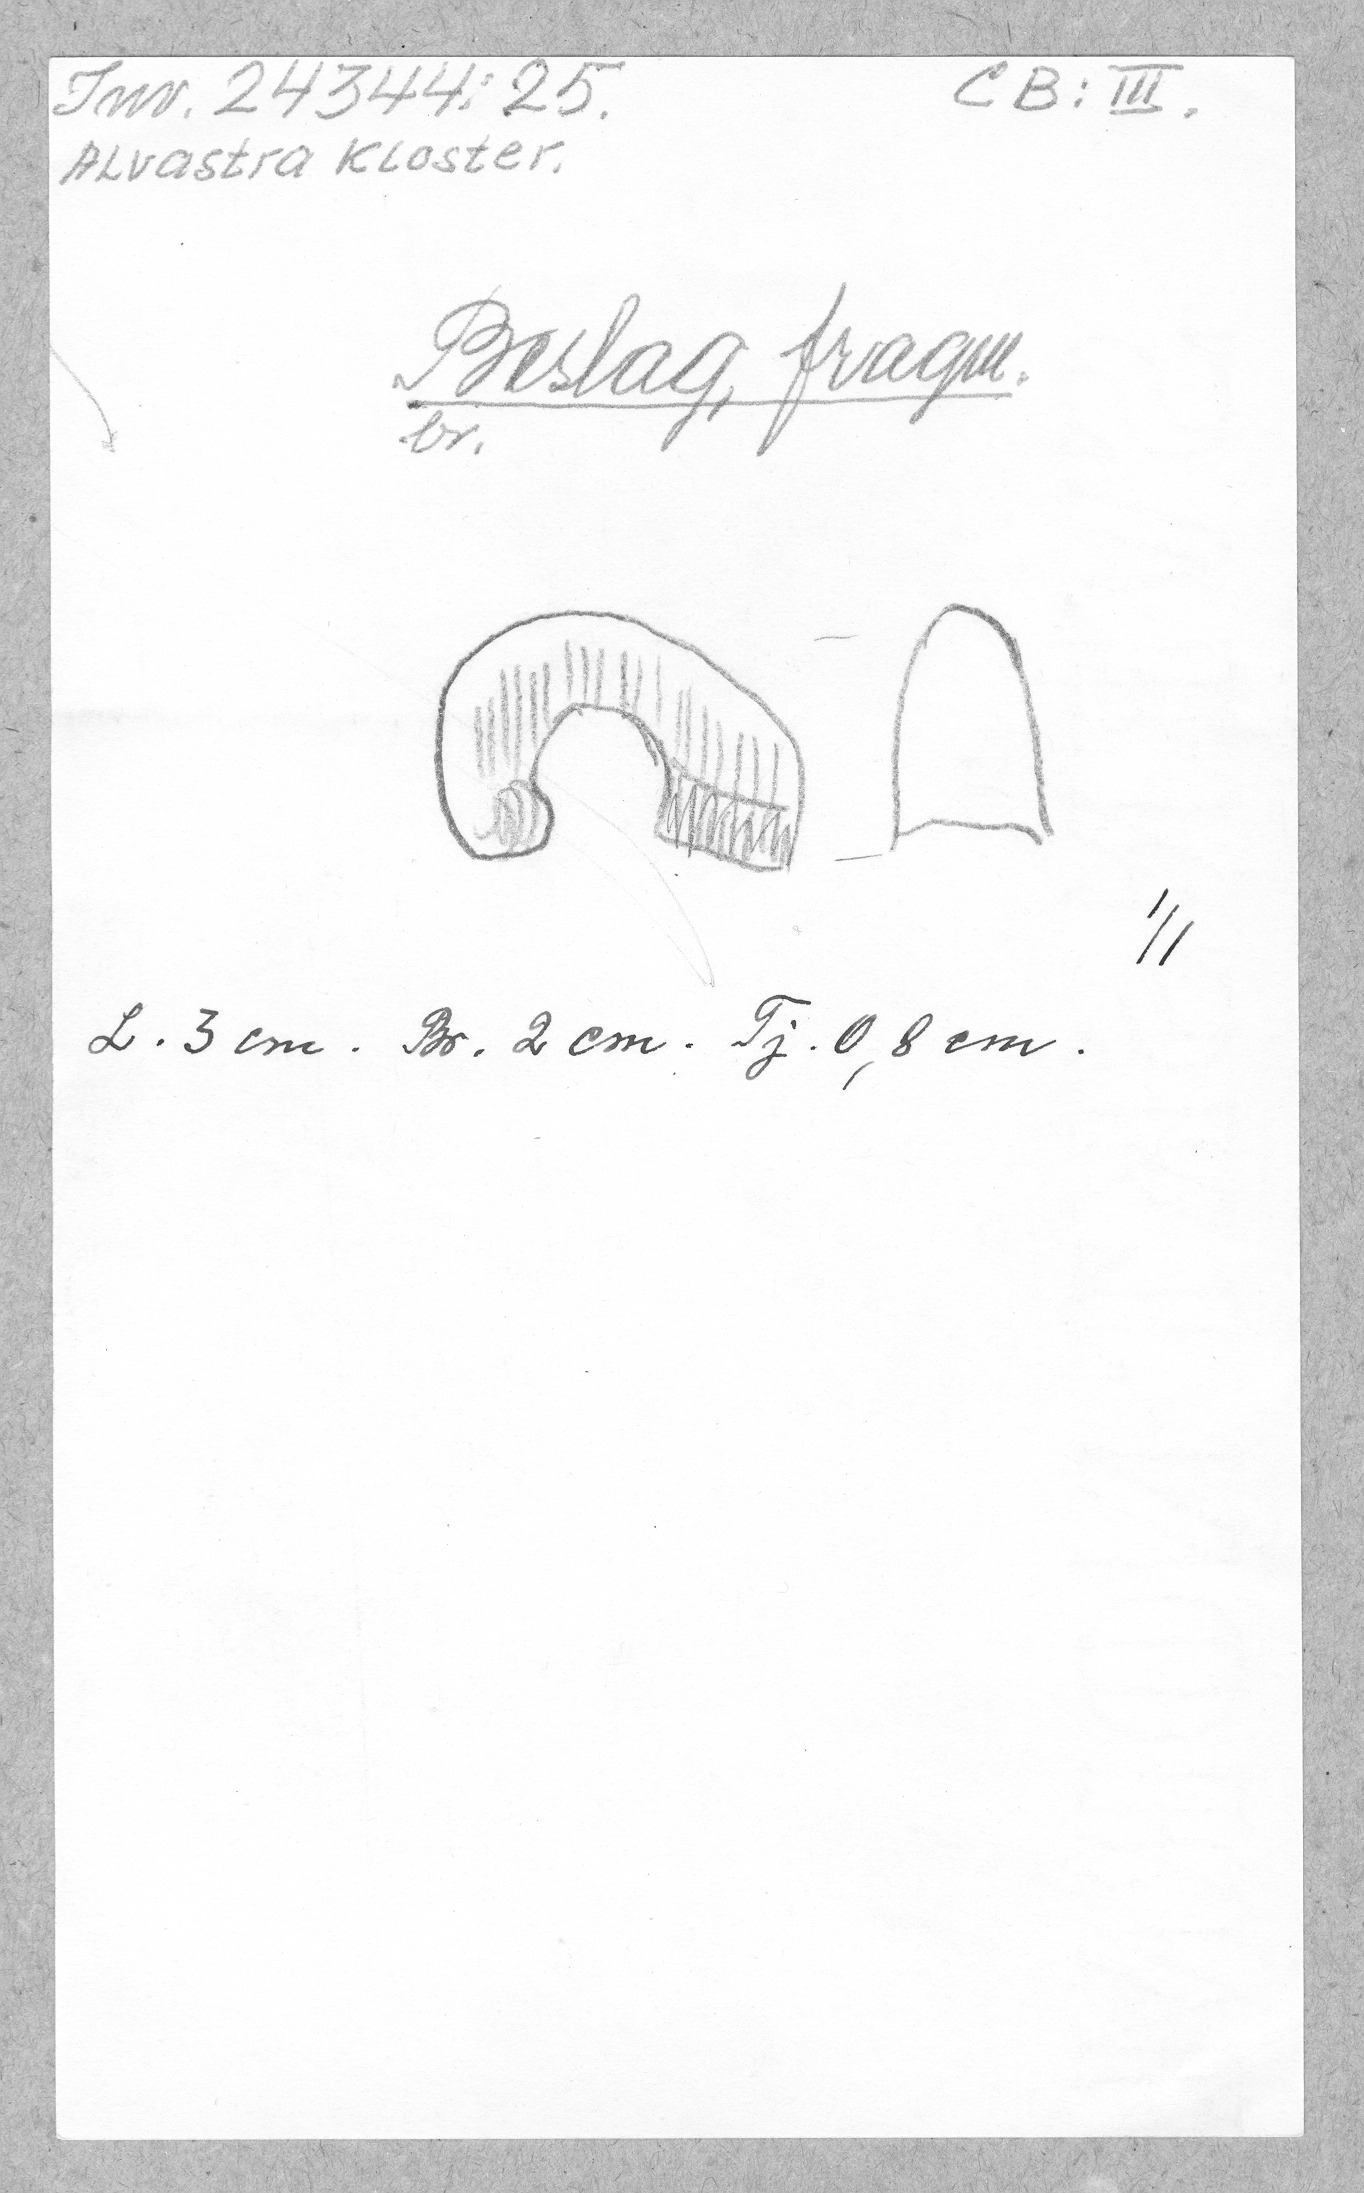 Inv. 24344:25.
CB: III.
Alvastra Kloster.
Beslag, fragm.
br.
1/1
L. 3 cm. Br. 2 cm. Tj. 0,8 cm.